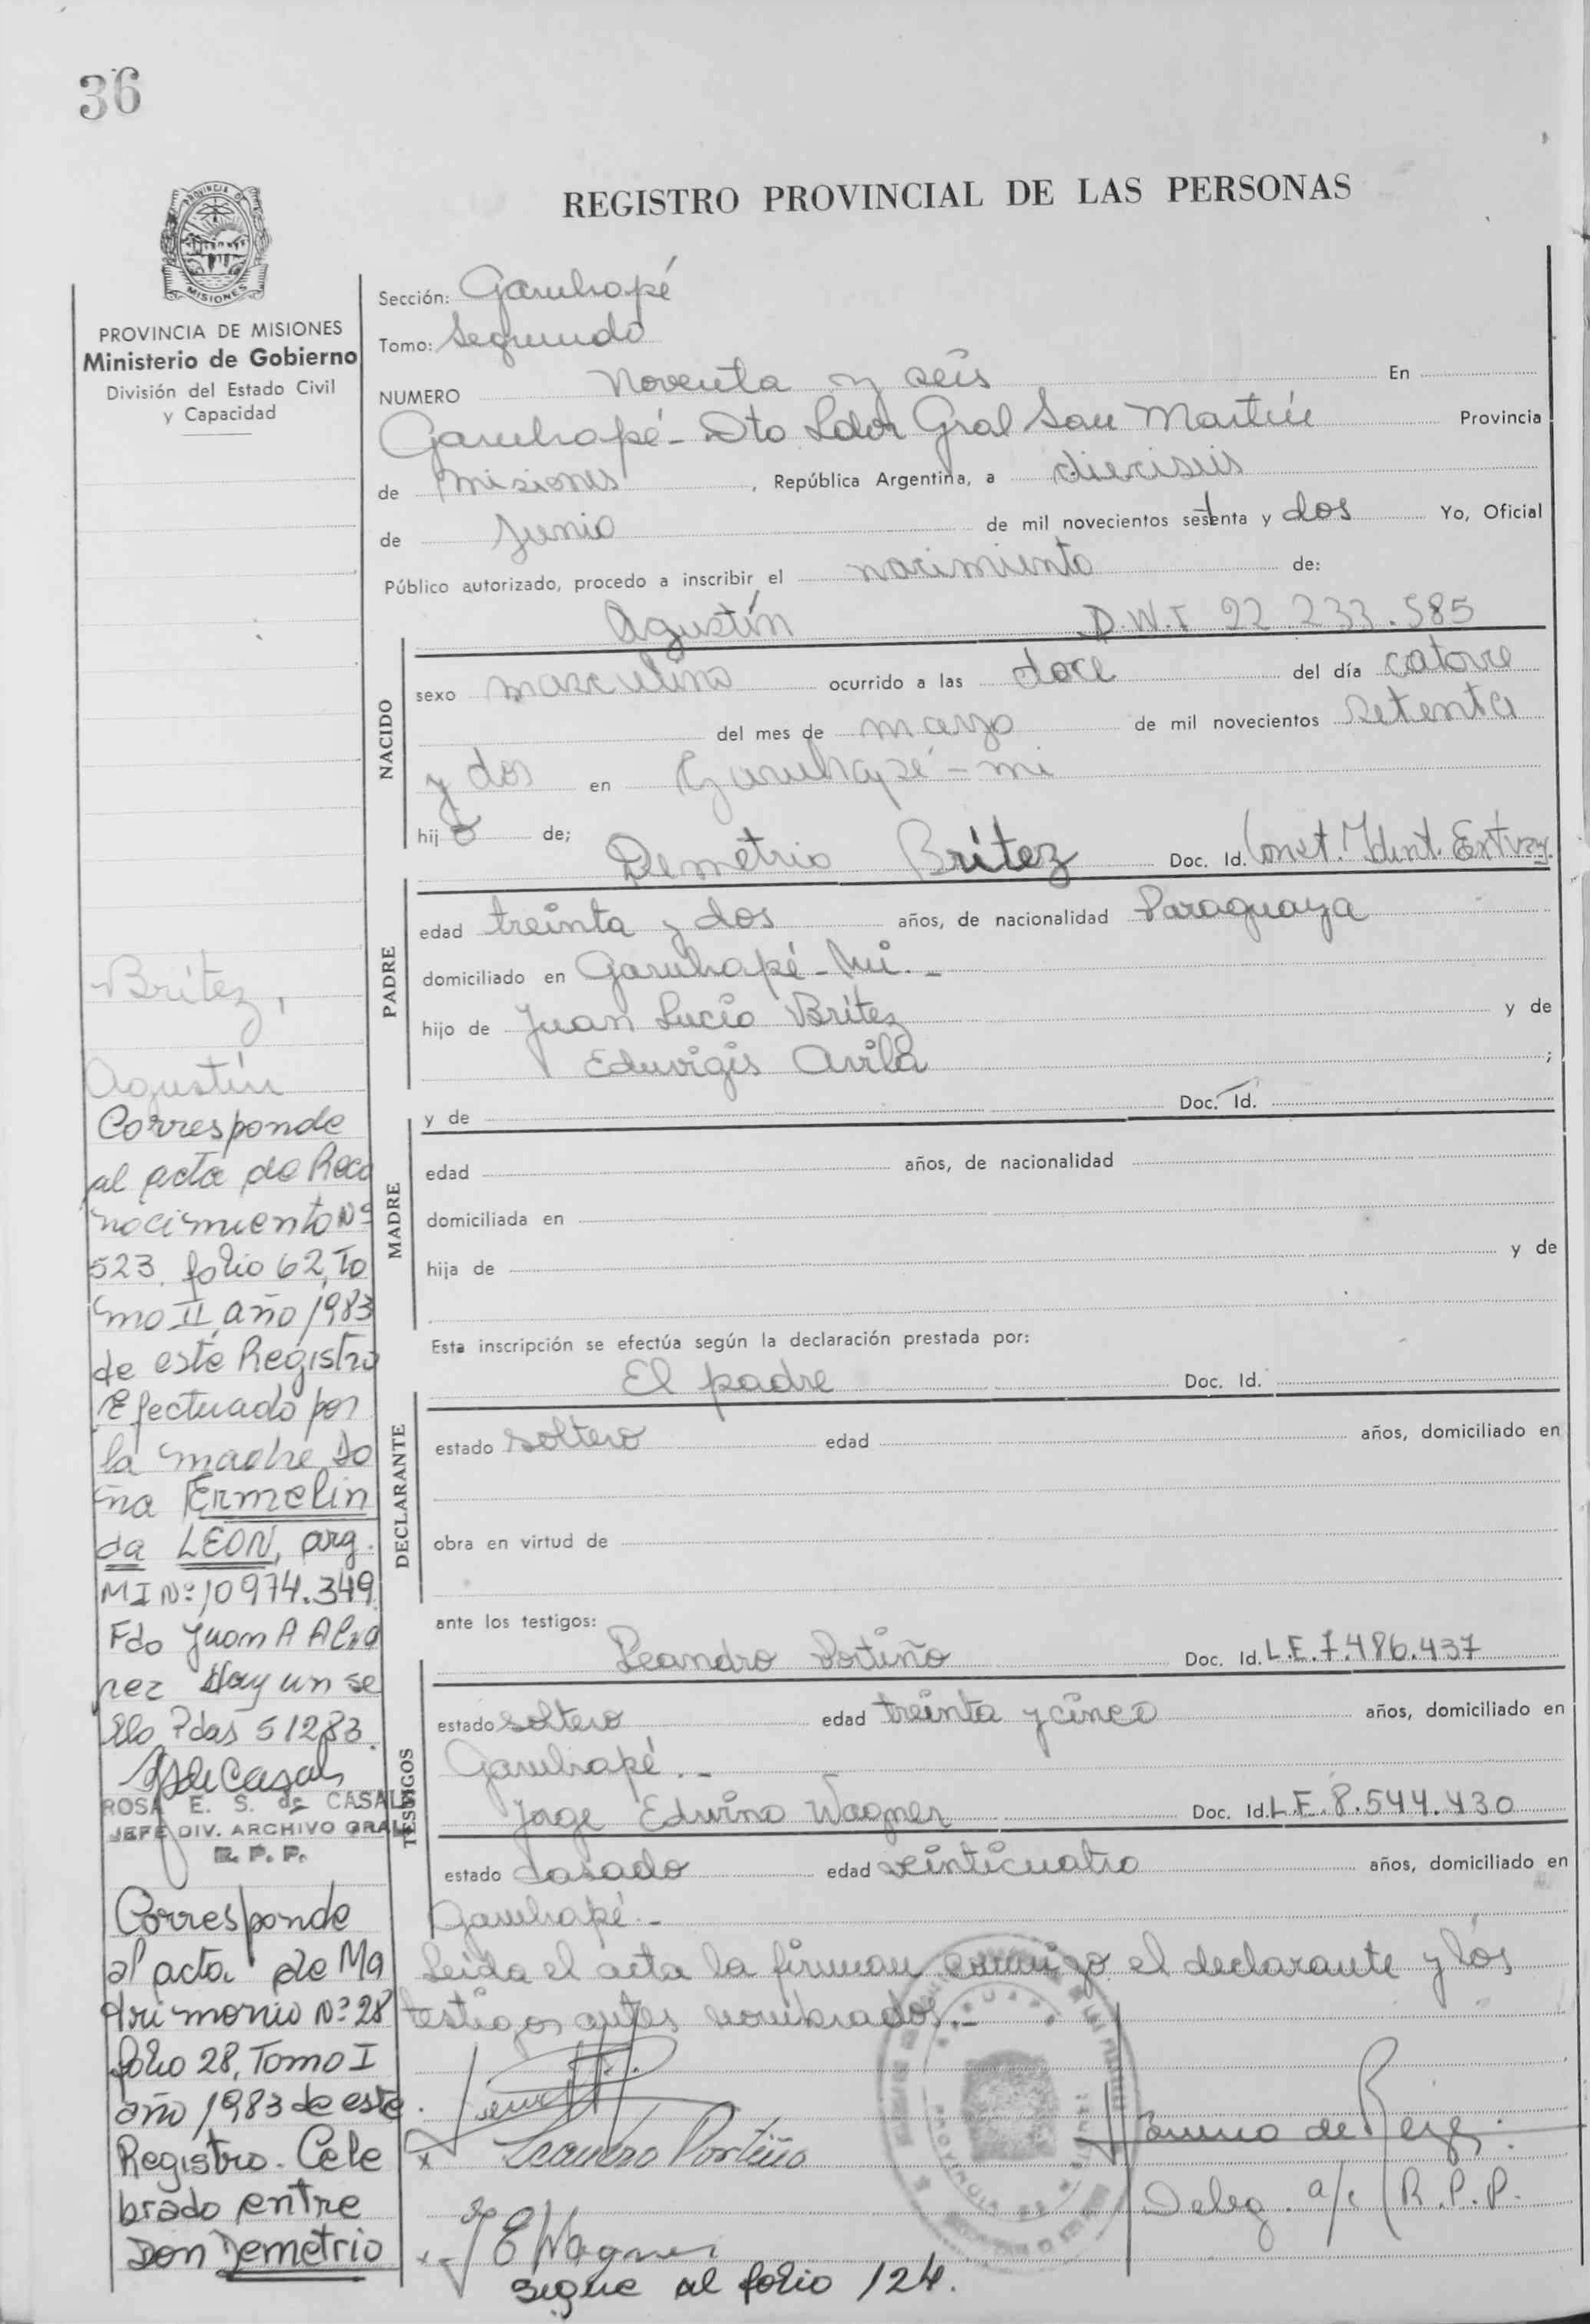 36
REGISTRO PROVINCIAL DE LAS PERSONAS
PROVINCIA DE
MISIONES
PROVINCIA DE MISIONES
Ministerio de Gobierno
División del Estado Civil
y Capacidad
Sección: Garuhapé
Tomo: Segundo
NUMERO Noventa y seis En
Garuhapé - Dto Ldor Gral San Martín Provincia
de Misiones, República Argentina, a dieciseis
de Junio de mil novecientos setenta y dos Yo, Oficial
Público autorizado, procedo a inscribir el nacimiento de:
Agustín D.N.I 22.233.585
NACIDO
sexo masculino ocurrido a las doce del día catorce
del mes de mayo de mil novecientos setenta
y dos en Garuhapé - mi
hijo de; Demetrio Britez Doc. Id. Const. Ident. Extraj.
PADRE
edad treinta y dos años, de nacionalidad Paraguaya
domiciliado en Garuhapé - Mi. -
hijo de Juan Lucio Britez y de
Eduvigis Avila ;
y de Doc. Id.
MADRE
edad años, de nacionalidad
domiciliada en
hija de y de
Esta inscripción se efectúa según la declaración prestada por:
El padre Doc. Id.
DECLARANTE
estado soltero edad años, domiciliado en
obra en virtud de
ante los testigos:
Leandro Portiño Doc. Id. L.E. 7.486.437
TESTIGOS
estado soltero edad treinta y cinco años, domiciliado en
Garuhapé. -
Jorge Edvino Wagner Doc. Id. L.E. 8.544.430
estado casado edad veinticuatro años, domiciliado en
Garuhapé. -
Leida el acta la firman conmigo el declarante y los
testigos antes nombrados. -
Leandro Portiño
J E Wagner
de Reyes
Deleg. a/c R.P.P.
sigue al folio 124.
Britez,
Agustín
Corresponde
al acta de Reco
nocimiento Nº
523 folio 62, To
mo II año 1983
de este Registro
Efectuado por
la madre Do
ña Ermelin
da LEON, arg.
MI Nº 10974.349
Fdo Juan A Alva
rez Hay un se
llo Pdas 51283.
ROSA E. S. de CASALS
JEFE DIV. ARCHIVO GRAL
R. P. P.
Corresponde
al acta de Ma
trimonio Nº 28
folio 28, Tomo I
año 1983 de este
Registro. Cele
brado entre
Don Demetrio